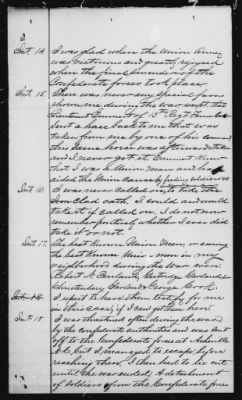 Int. 14. I was glad when the Union Army
was victorious and greatly rejoiced
when the final surrender of the
Confederate forces took place.
Int. 15. There was never any special favor
shown me during the war except that
Lieutenant Emmett of 13th Regt
sent a horse back to me that was
taken from me by one of his command
this same horse was afterwards taken
and I never got it. Emmett knew
that I was a Union man and had
aided the Union cause by feeding soldiers
Int. 16. I was never called on to take the
Iron clad oath. I could and would
take it if called on, I do not now
remember positively whether I ever did
take it or not.
Int. 17. The best known Union Men, or among
the best known Union men in my
neighborhood during the war were
Robert A.
and George Cook.
I expect to have them testify for me
in this case, if I can get them here
Int. 18 I was threatened often during the war
by the Confederate authorities and was sent
off to the Confederate forces at Asheville
N.C. but I managed to escape before
reaching there. I then had to lie out
until the war ended; A detachment
of soldiers from the Confederate forces